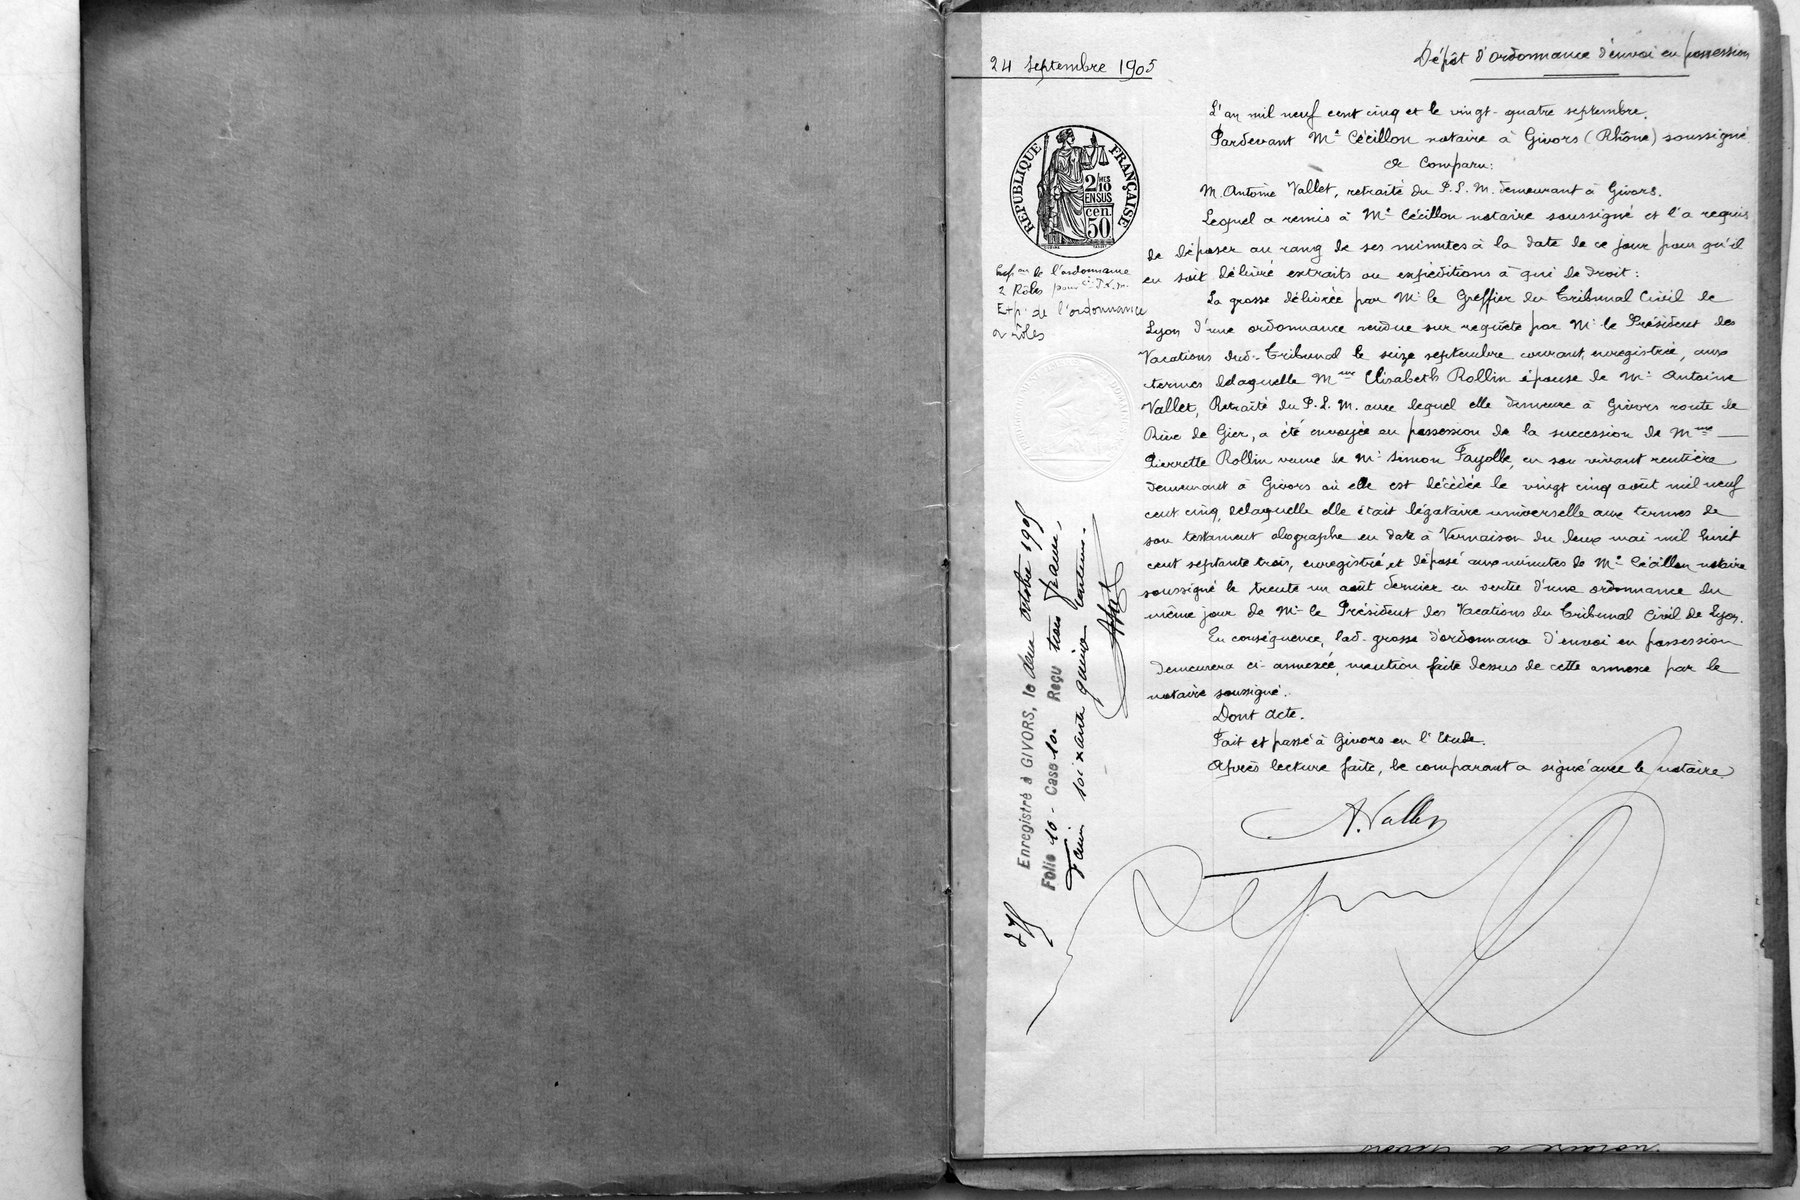 24 septembre 1905
Dépôt d'ordonnance d'envoi en possession
L'an mil neuf cent cinq et le vingt-quatre septembre.
Pardevant Me Cécillon notaire à Givors (Rhône) soussigné
a Comparu:
M. Antoine Vallet, retraité du P. L. M. demeurant à Givors.
Lequel a remis à Me Cécillon notaire soussigné et l'a requis
de déposer au rang de ses minutes à la date de ce jour pour qu'il
en soit délivré extraits ou expéditions à qui de droit:
La grosse délivrée par Mr le Greffier du Tribunal Civil de
Lyon d'une ordonnance rendue sur requête par Mr le Président des
Vacations dud. Tribunal le seize septembre courant, enregistrée, aux
termes delaquelle Mme Elisabeth Rollin épouse de Mr Antoine
Vallet, Retraité du P. L. M. avec lequel elle demeure à Givors route de
Rive de Gier, a été envoyée en possession de la succession de Mme
Pierrette Rollin veuve de Mr Simon Fayolle, en son vivant rentière
demeurant à Givors où elle est décédée le vingt cinq août mil neuf
cent cinq, delaquelle elle était légataire universelle aux termes de
son testament olographe en date à Vernaison du deux mai mil huit
cent septante trois, enregistré et déposé aux minutes de Me Cécillon notaire
soussigné le trente un août dernier en vertu d'une ordonnance du
même jour de Mr le Président des Vacations du Tribunal Civil de Lyon.
En conséquence, lad. grosse d'ordonnance d'envoi en possession
demeurera ci-annexée, mention faite dessus de cette annexe par le
notaire soussigné.
Dont acte.
Fait et passé à Givors en l'Etude.
Après lecture faite, le comparant a signé avec le notaire
A. Vallet
RÉPUBLIQUE FRANÇAISE
2/10 MES
EN SUS
50 cen.
de l'ordonnance
2 Rôles pour
Exp. de l'ordonnance
2 rôles
Enregistré à GIVORS, le deux octobre 1905
Folio 10 Case 10. Reçu trois francs
soixante quinze centimes.
notaire à Givors